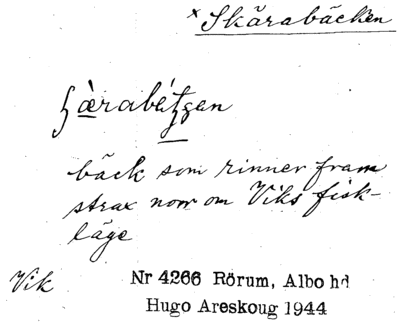 × Skärabäcken
bäck som rinner fram
strax norr om Viks fisk-
läge
Vik
Nr 4266 Rörum, Albo hd
Hugo Areskoug 1944